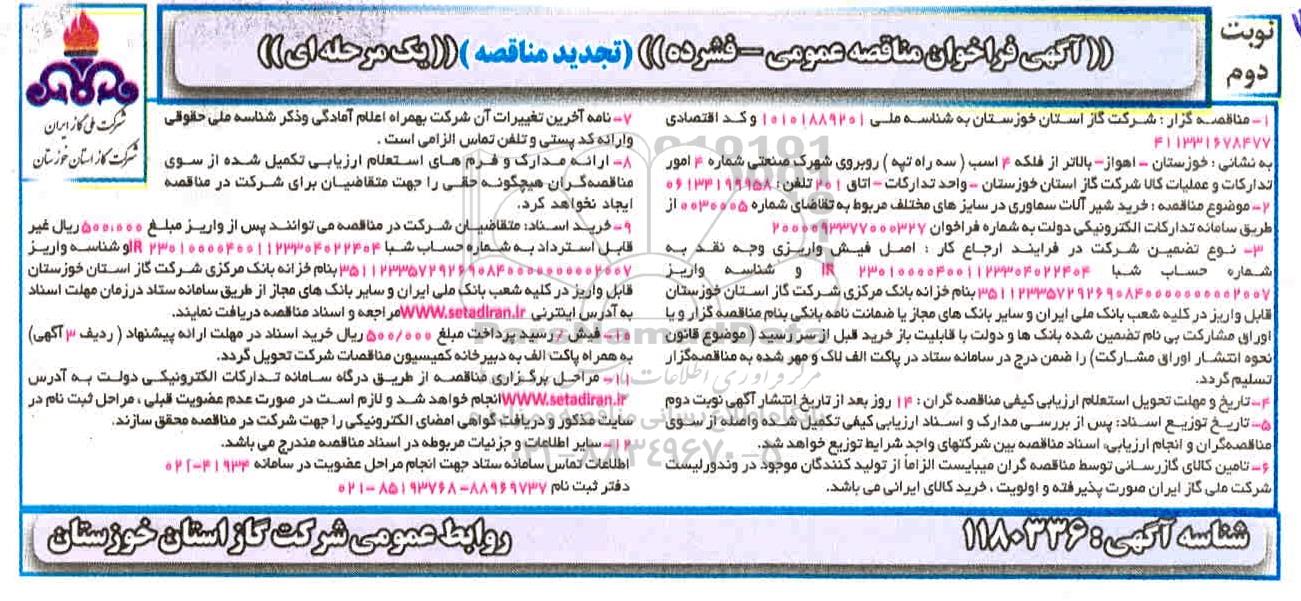 نوبت
دوم
((آگهی فراخوان مناقصه عمومی – فشرده)) (تجدید مناقصه) ((یک مرحله ای))
شرکت ملی گاز ایران
شرکت گاز استان خوزستان
۱- مناقصه گزار : شرکت گاز استان خوزستان به شناسه ملی ۱۰۱۰۱۸۸۹۲۰۱ و کد اقتصادی
۴۱۱۳۳۱۶۷۸۴۷۷
به نشانی : خوزستان – اهواز– بالاتر از فلکه ۴ اسب ( سه راه تپه ) روبروی شهرک صنعتی شماره ۴ امور
تدارکات و عملیات کالا شرکت گاز استان خوزستان –واحد تدارکات– اتاق ۲۰۱ تلفن : ۰۶۱۳۴۱۹۹۹۵۸
۲– موضوع مناقصه : خرید شیر آلات سماوری در سایز های مختلف مربوط به تقاضای شماره ۰۰۳۰۰۰۵ از
طریق سامانه تدارکات الکترونیکی دولت به شماره فراخوان ۲۰۰۰۰۹۳۳۷۷۰۰۰۳۲۷
۳– نوع تضمین شرکت در فرایند ارجاع کار : اصل فیش واریزی وجه نقد به
شماره حساب شبا IR ۲۳۰۱۰۰۰۰۴۰۰۱۱۲۳۳۰۴۰۲۲۴۰۴ و شناسه واریز
۳۵۱۱۲۳۳۵۷۲۹۲۶۹۰۸۴۰۰۰۰۰۰۰۰۰۰۲۰۰۷ بنام خزانه بانک مرکزی شرکت گاز استان خوزستان
قابل واریز در کلیه شعب بانک ملی ایران و سایر بانک های مجاز یا ضمانت نامه بانکی بنام مناقصه گزار و یا
اوراق مشارکت بی نام تضمین شده بانک ها و دولت با قابلیت باز خرید قبل از سررسید ( موضوع قانون
نحوه انتشار اوراق مشارکت) را ضمن درج در سامانه ستاد در پاکت الف لاک و مهر شده به مناقصه‌گزار
تسلیم گردد.
۴– تاریخ و مهلت تحویل استعلام ارزیابی کیفی مناقصه گران : ۱۴ روز بعد از تاریخ انتشار آگهی نوبت دوم
۵– تاریخ توزیع اسناد: پس از بررسی مدارک و اسناد ارزیابی کیفی تکمیل شده واصله از سوی
مناقصه‌گران و انجام ارزیابی، اسناد مناقصه بین شرکتهای واجد شرایط توزیع خواهد شد.
۶– تامین کالای گازرسانی توسط مناقصه گران میبایست الزاماً از تولید کنندگان موجود در وندورلیست
شرکت ملی گاز ایران صورت پذیرفته و اولویت ، خرید کالای ایرانی می باشد.
۷– نامه آخرین تغییرات آن شرکت بهمراه اعلام آمادگی وذکر شناسه ملی حقوقی
وارائه کد پستی و تلفن تماس الزامی است .
۸– ارائه مدارک و فرم های استعلام ارزیابی تکمیل شده از سوی
مناقصه‌گران هیچگونه حقی را جهت متقاضیان برای شرکت در مناقصه
ایجاد نخواهد کرد.
۹– خرید اسناد: متقاضیان شرکت در مناقصه می توانند پس از واریز مبلغ ۵۰۰،۰۰۰ ریال غیر
قابل استرداد به شماره حساب شبا IR ۲۳۰۱۰۰۰۰۴۰۰۱۱۲۳۳۰۴۰۲۲۴۰۴ و شناسه واریز
۳۵۱۱۲۳۳۵۷۲۹۲۶۹۰۸۴۰۰۰۰۰۰۰۰۰۰۲۰۰۷ بنام خزانه بانک مرکزی شرکت گاز استان خوزستان
قابل واریز در کلیه شعب بانک ملی ایران و سایر بانک های مجاز از طریق سامانه ستاد درزمان مهلت اسناد
به آدرس اینترنتی WWW.setadiran.ir مراجعه و اسناد مناقصه دریافت نمایند.
۱۰– فیش / رسید پرداخت مبلغ ۵۰۰/۰۰۰ ریال خرید اسناد در مهلت ارائه پیشنهاد ( ردیف ۳ آگهی)
به همراه پاکت الف به دبیرخانه کمیسیون مناقصات شرکت تحویل گردد.
۱۱– مراحل برگزاری مناقصه از طریق درگاه سامانه تدارکات الکترونیکی دولت به آدرس
WWW.setadiran.ir انجام خواهد شد و لازم است در صورت عدم عضویت قبلی ، مراحل ثبت نام در
سایت مذکور و دریافت گواهی امضای الکترونیکی را جهت شرکت در مناقصه محقق سازند.
۱۲– سایر اطلاعات و جزئیات مربوطه در اسناد مناقصه مندرج می باشد.
اطلاعات تماس سامانه ستاد جهت انجام مراحل عضویت در سامانه ۴۱۹۳۴–۰۲۱
دفتر ثبت نام ۸۸۹۶۹۷۳۷–۸۵۱۹۳۷۶۸–۰۲۱
ParsNamadData
۰۲۱-۸۸۳۴۹۶۷۰-۵
شناسه آگهی : ۱۱۸۰۳۳۶
روابط عمومی شرکت گاز استان خوزستان